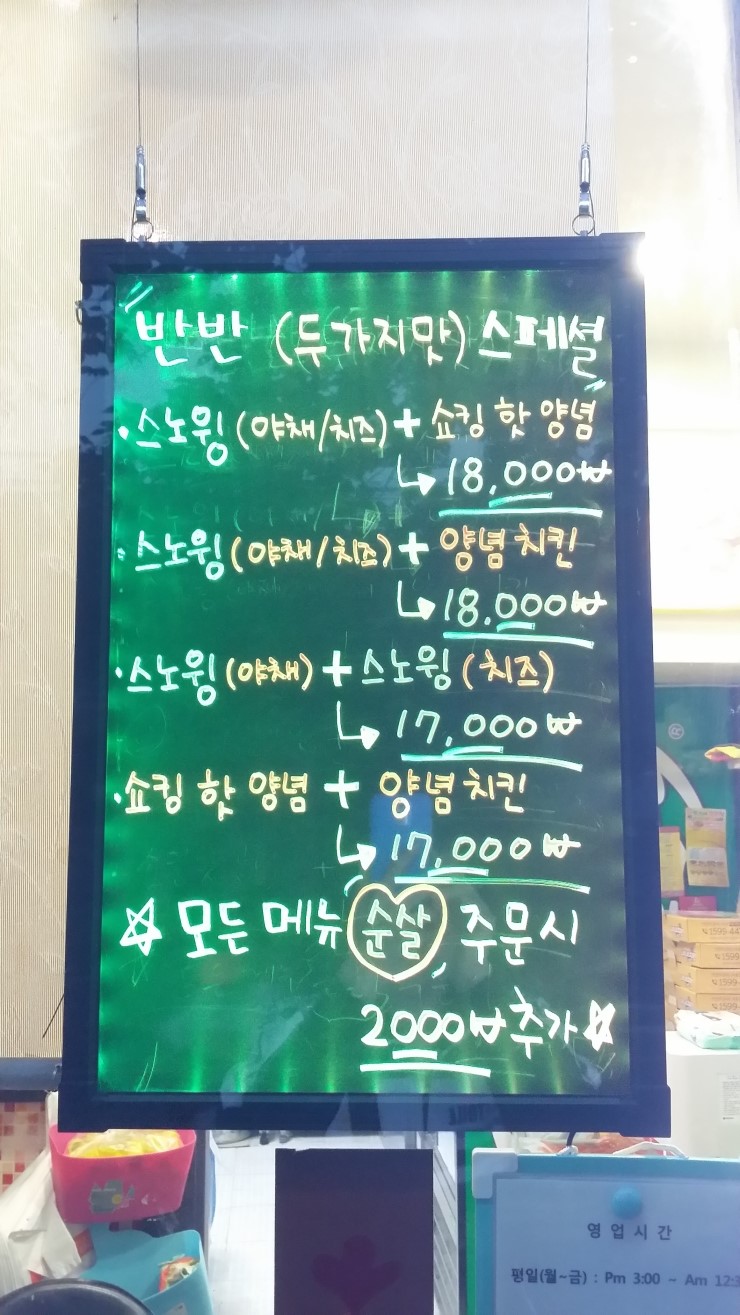 반반 (두가지맛) 스페셜
· 스노윙 (야채/치즈) + 쇼킹 핫 양념
↳ 18,000₩
· 스노윙 (야채/치즈) + 양념 치킨
↳ 18,000₩
· 스노윙 (야채) + 스노윙 (치즈)
↳ 17,000₩
· 쇼킹 핫 양념 + 양념 치킨
↳ 17,000₩
☆ 모든 메뉴 순살 주문시
2000₩ 추가 ☆
영 업 시 간
평일(월~금) : Pm 3:00 ~ Am